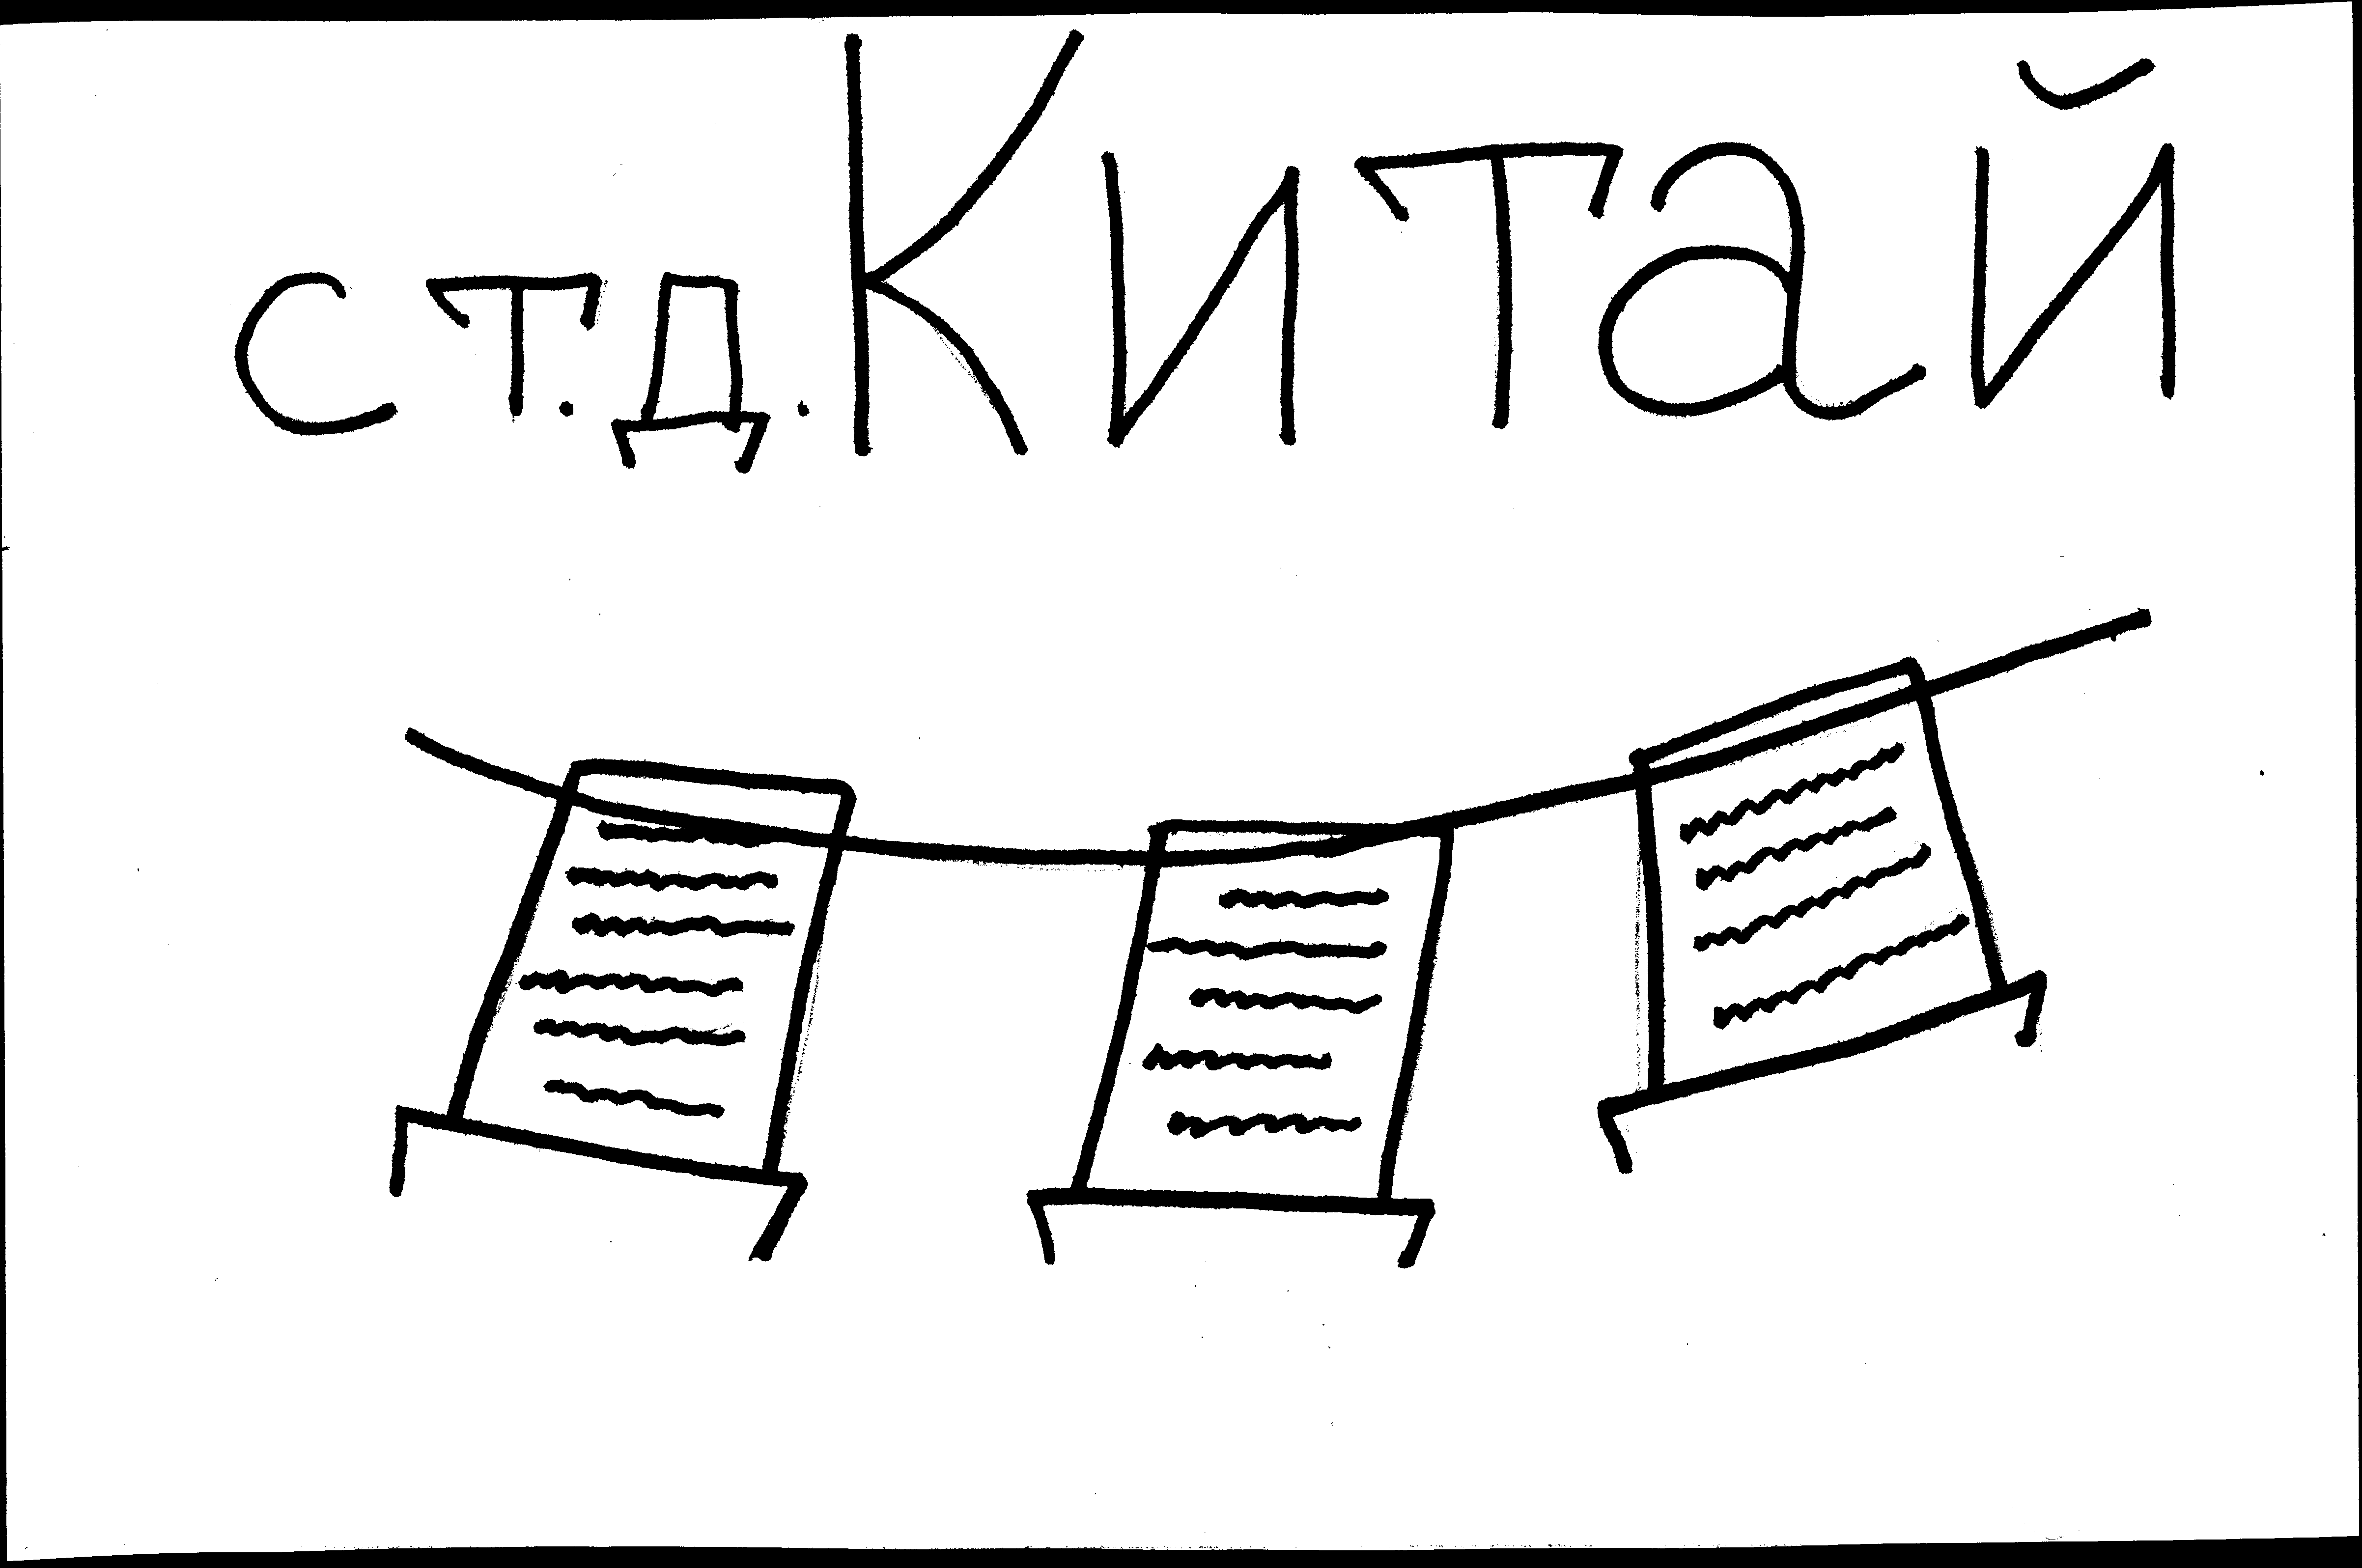 ст.д.Китай